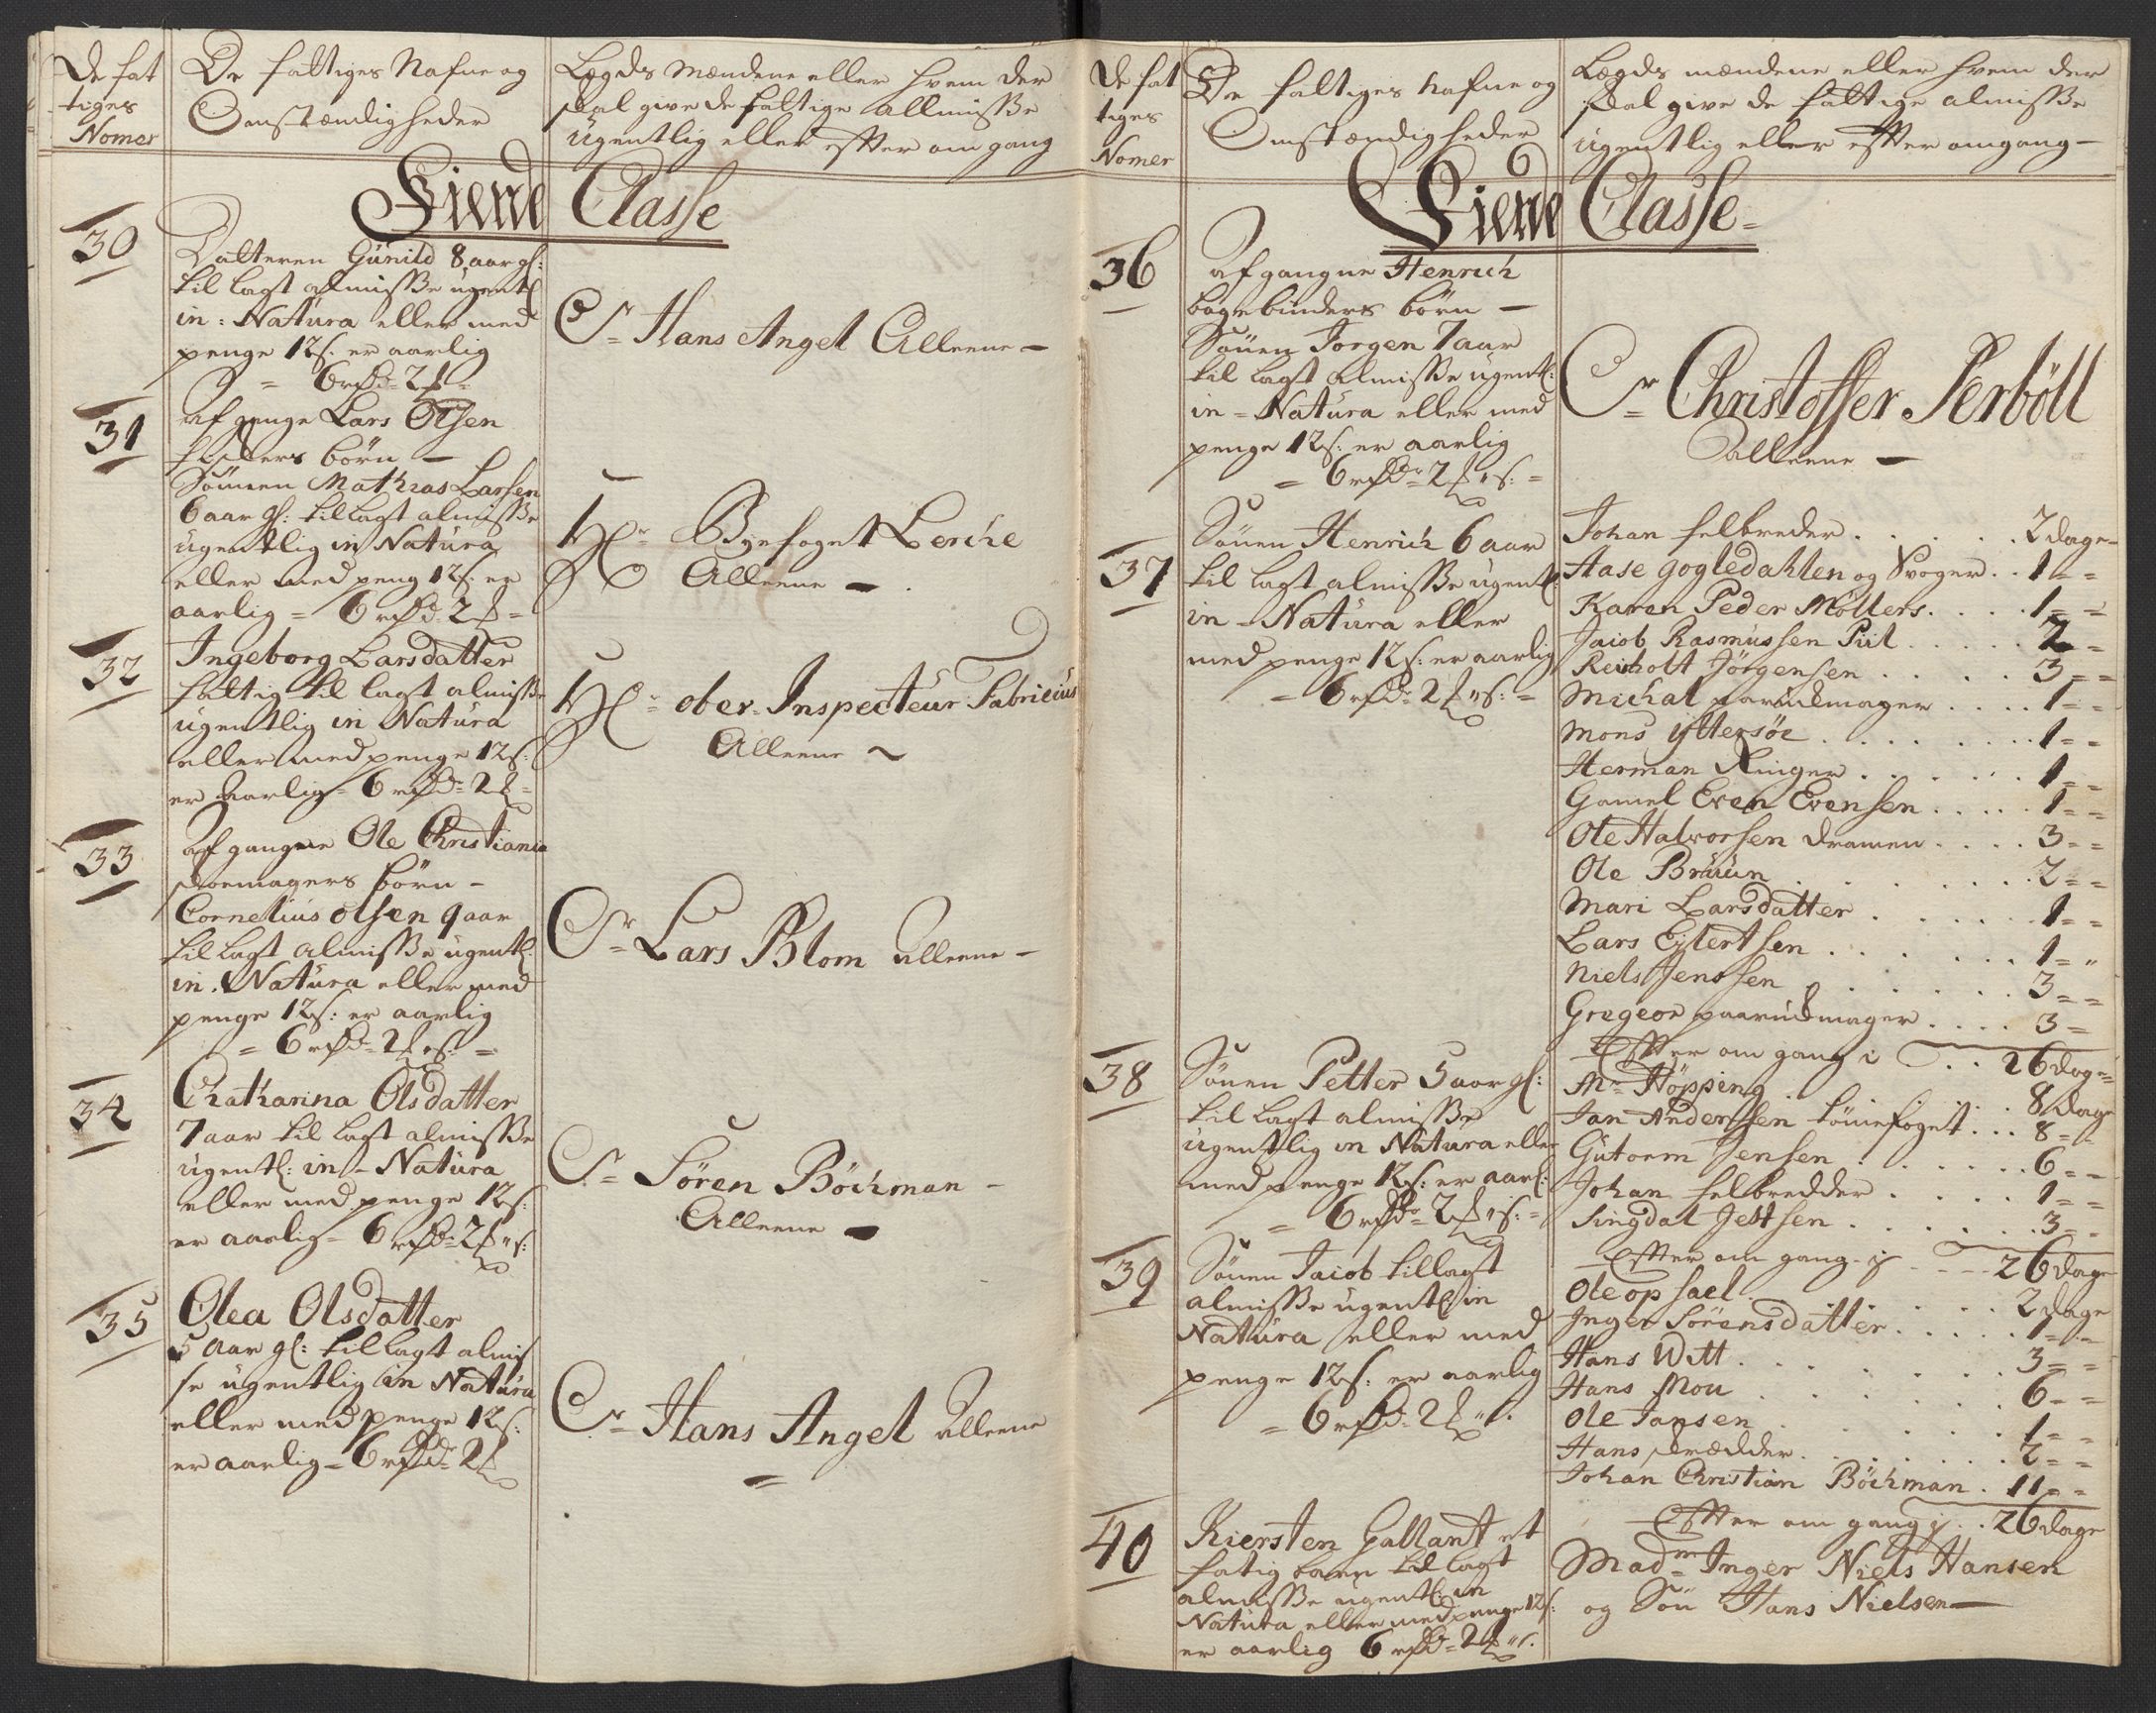 De fat
tiges
Nomer
De fattiges Nafne og
Omstændigheder
Lægds Mændene eller hvem der
skal give de fattige allmisse
ugentlig eller effter om gang
Fierde Classe
30
Datteren Gunild 8 aar gl:
til lagt almisse ugentl
in: Natura eller med
penge 12 s: er aarlig
= 6 rd = 2
Sr Hans Angel Alleene —
31
afgange Lars Olsen
børn —
Sønnen Mathias Larsen
6 aar gl: tillagt almisse
ugentlig in Natura
eller med peng 12 s: er
aarlig = 6 rd = 2
Hr Byefoget Lerche
Alleene —
32
Ingeborg Larsdatter
fattig til lagt almisse
ugentlig in Natura
eller med penge 12 s:
er aarlig = 6 rd = 2
Hr ober Inspecteur Fabricius
Alleene ~
33
afgangne Ole Christiania
skoemagers børn —
Cornelius olsen 9 aar
til lagt almisse ugentl.
in. Natura eller med
penge 12 s: er aarlig
= 6 rd = 2 s =
Sr Lars Blom alleene —
34
Chatharina Olsdatter
7 aar til lagt almisse
ugentl: in = Natura
eller med penge 12 s:
er aarlig = 6 rd = 2 " s:
Sr Søren Böchman —
Alleene —
35
Olea Olsdatter
5 aar gl: tillagt almis
se ugentlig in Natura
eller med penge 12 s:
er aarlig = 6 rd = 2
Sr Hans Angel alleene
De fat
tiges
Nomer
De fattiges Nafne og
Omstændigheder
Lægds mændene eller hvem der
skal give de fattige almisse
ugentlig eller effter omgang —
Fierde Classe =
36
afgangne Henrich
bogebinders børn —
Sönen Jorgen 7 aar
til lagt almisse ugentl:
in = Natura eller med
penge 12 s: er aarlig
= 6 rd = 2 " s: =
Sr Christoffer Perböll
alleene —
37
Sönen Henrich 6 aar
til lagt almisse ugentl:
in = Natura eller
med penge 12 s: er aarlig
= 6 rd = 2 " s: =
Johan felbreder . . . . . 2 dage
Aase gogledahlen og Svoger . . 1 = =
Karen Peder Möllers . . . . 1 = =
Jacob Rasmussen Piil . . . . 2 =
Reinholt Jörgensen . . . . 3 = =
Michal parukmager . . . . 1 = =
Mons yttersöe . . . . . 1 = =
Herman Ringer . . . . . 1 = =
Gamel Even Evensen . . . . 1 = =
Ole Halvorsen dramen . . . . 3 = =
Ole Bruun . . . . . . 2 = =
Mari Larsdatter . . . . . 1 = =
Lars Eylertsen . . . . . 1 = "
Niels Jensen . . . . . . 3 = =
Gregeor paarukmager . . . . 3 =
Effter om gang i . . 26 dage =
38
Sönen Petter 5 aar gl:
til lagt almisse
ugentlig in Natura eller
med penge 12 s: er aarl:
= 6 rd = 2 " s: =
Mr Höpping . . . . . 8 dage
Jan Andersen tömefoget . . . 8 = =
Gutorm Jensen . . . . . 6 = =
Johan felbredder . . . . 1 = =
Singdal Jettsen . . . . . 3 =
Effter om gang — 26 dage
39
Sönen Jacob tillagt
almisse ugentl in
Natura eller med
penge 12 s: er aarlig
= 6 rd = 2 " s.
Ole opsael . . . . . 2 dage
Inger Sörensdatter . . . . 1 = =
Hans Witt . . . . . . 3 = =
Hans Mou . . . . . . 6 = =
Ole Jansen . . . . . . 1 = =
Hans skrædder . . . . . 2 = =
Johan Christian Böchman . 11 = =
Effter om gang . . 26 dage
40
Kiersten Gallant et
fatig barn til lagt
almisse ugentl: in
Natura eller med penge 12 s:
er aarlig 6 rd = 2 " s.
Madm Inger Niels Hansen
og Sön Hans Nielsen —